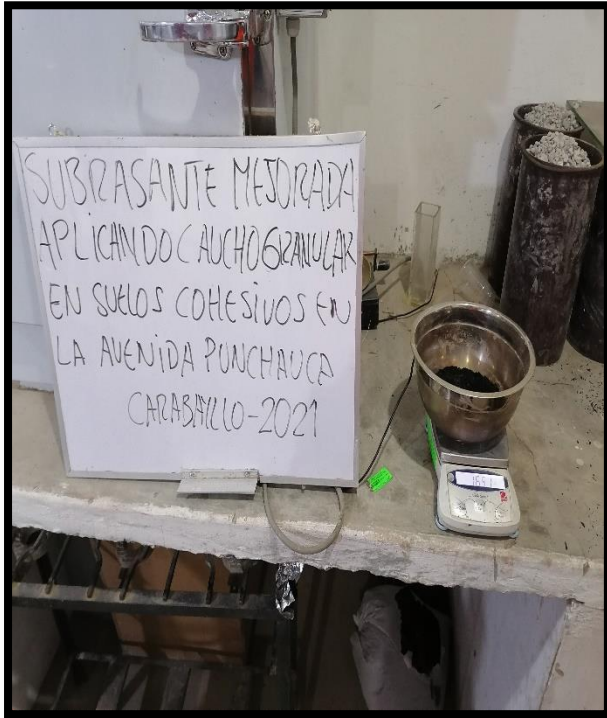 SUBRASANTE MEJORADA
APLICANDO CAUCHO GRANULAR
EN SUELOS COHESIVOS EN
LA AVENIDA PUNCHAUCA
CARABAYLLO-2021